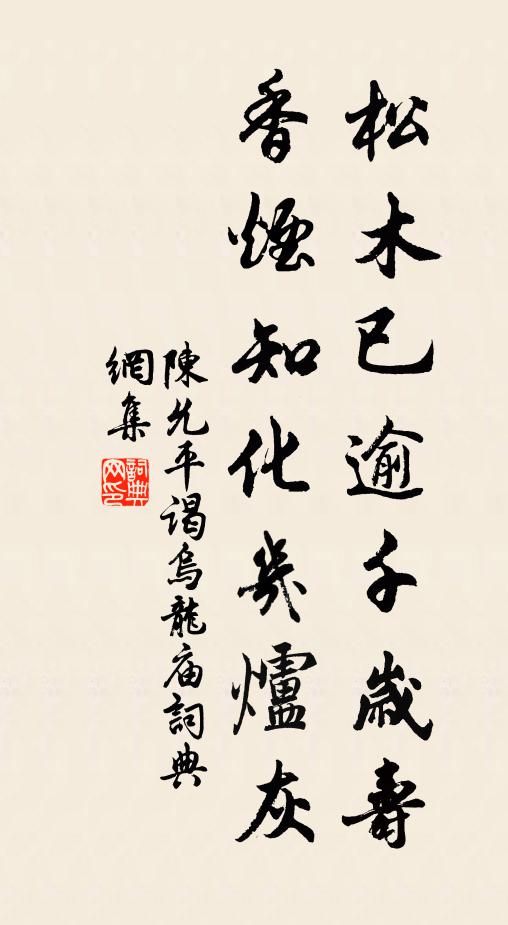 松木已逾千歲壽
香煙知化幾爐灰
陳允平謁烏龍庙詞典
網集
詞典网印